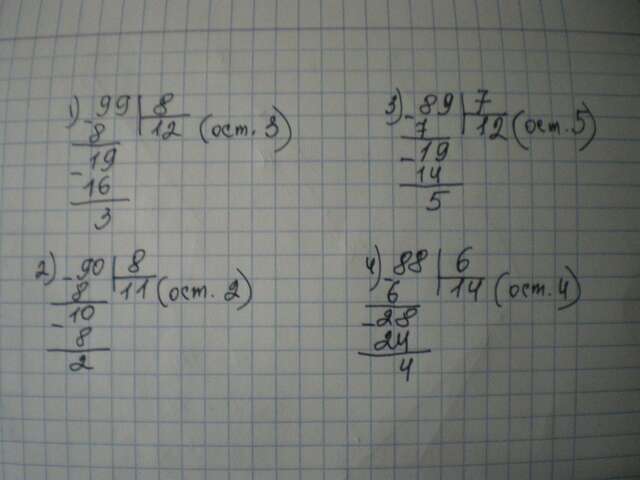 1) - 99 | 8
8 12 (ост. 3)
- 19
16
3
2) - 90 | 8
8 11 (ост. 2)
- 10
8
2
3) - 89 | 7
7 12 (ост. 5)
- 19
14
5
4) - 88 | 6
6 14 (ост. 4)
- 28
24
4